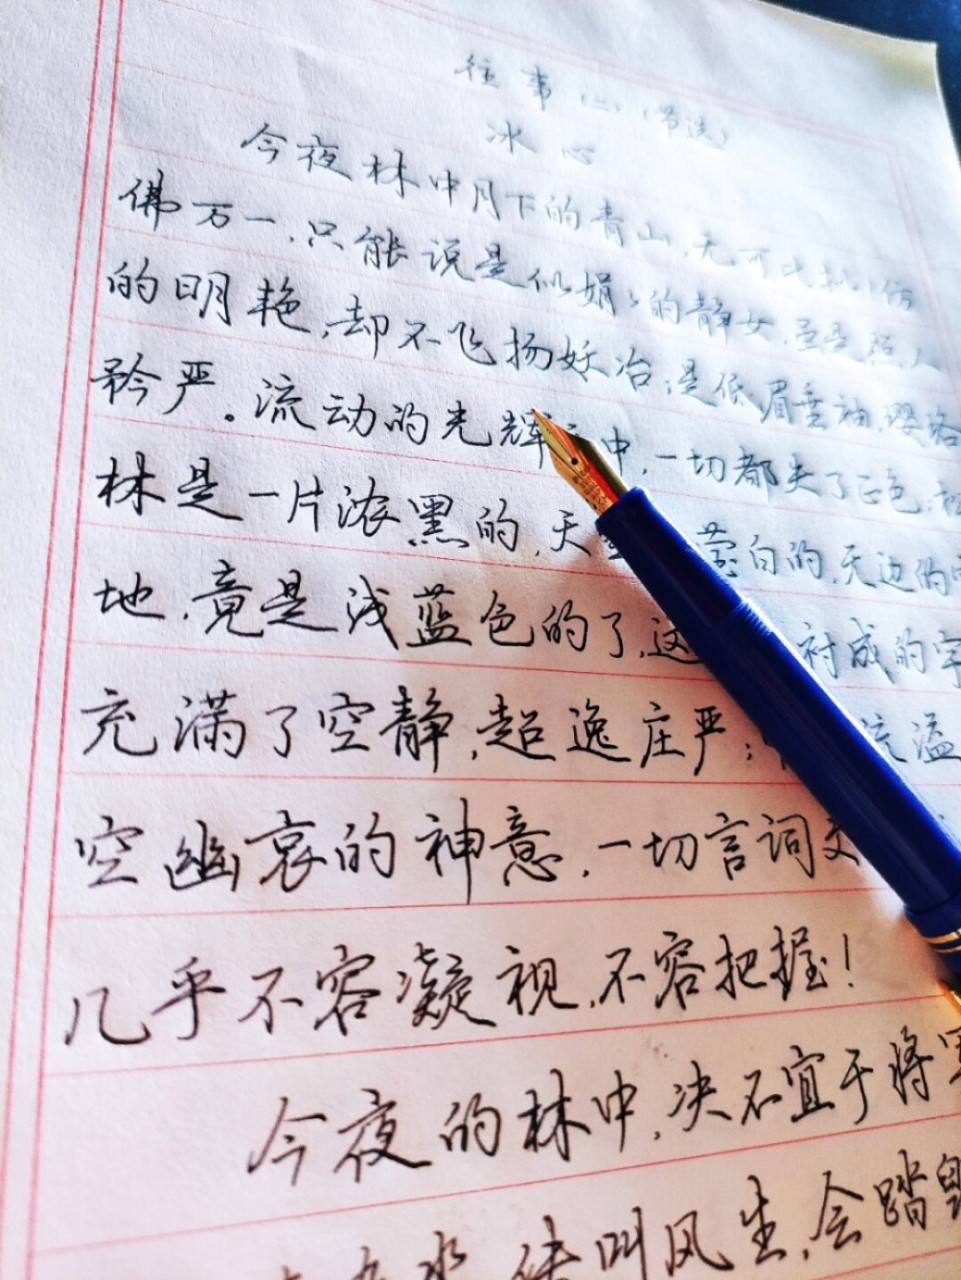 往事(二)(节选)
冰心
今夜林中月下的青山,无可比拟!仿
佛万一,只能说是似娟娟的静女,虽是照人
的明艳,却不飞扬妖冶;是低眉垂袖,璎珞
矜严。流动的光辉之中,一切都失了正色:松
林是一片浓黑的,天 莹白的,无边的
地,竟是浅蓝色的了。这 衬成的宇
充满了空静,超逸庄严; 流溢
空幽哀的神意,一切言词文
几乎不容凝视,不容把握!
今夜的林中,决不宜于将军
叫风生,会踏毁